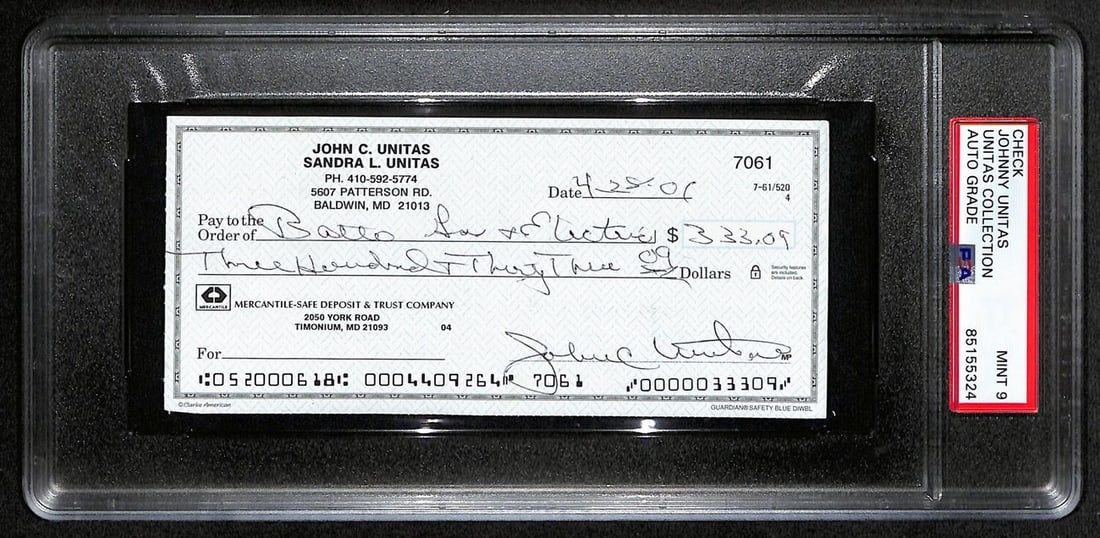 JOHN C. UNITAS
SANDRA L. UNITAS
PH. 410-592-5774
5607 PATTERSON RD.
BALDWIN, MD 21013
7061
7-61/520
4
Date 4-28-01
Pay to the
Order of Balto Gas & Electric $ 333.09
Three Hundred & Thirty Three 09 Dollars
Security features
are included.
Details on back.
MERCANTILE
MERCANTILE-SAFE DEPOSIT & TRUST COMPANY
2050 YORK ROAD
TIMONIUM, MD 21093 04
For John C Unitas MP
⑆052000618⑆ 0004409264⑈ 7061 ⑈0000033309⑈
©Clarke American
GUARDIAN® SAFETY BLUE DIWBL
CHECK
JOHNNY UNITAS
UNITAS COLLECTION
AUTO GRADE MINT 9
PSA 85155324